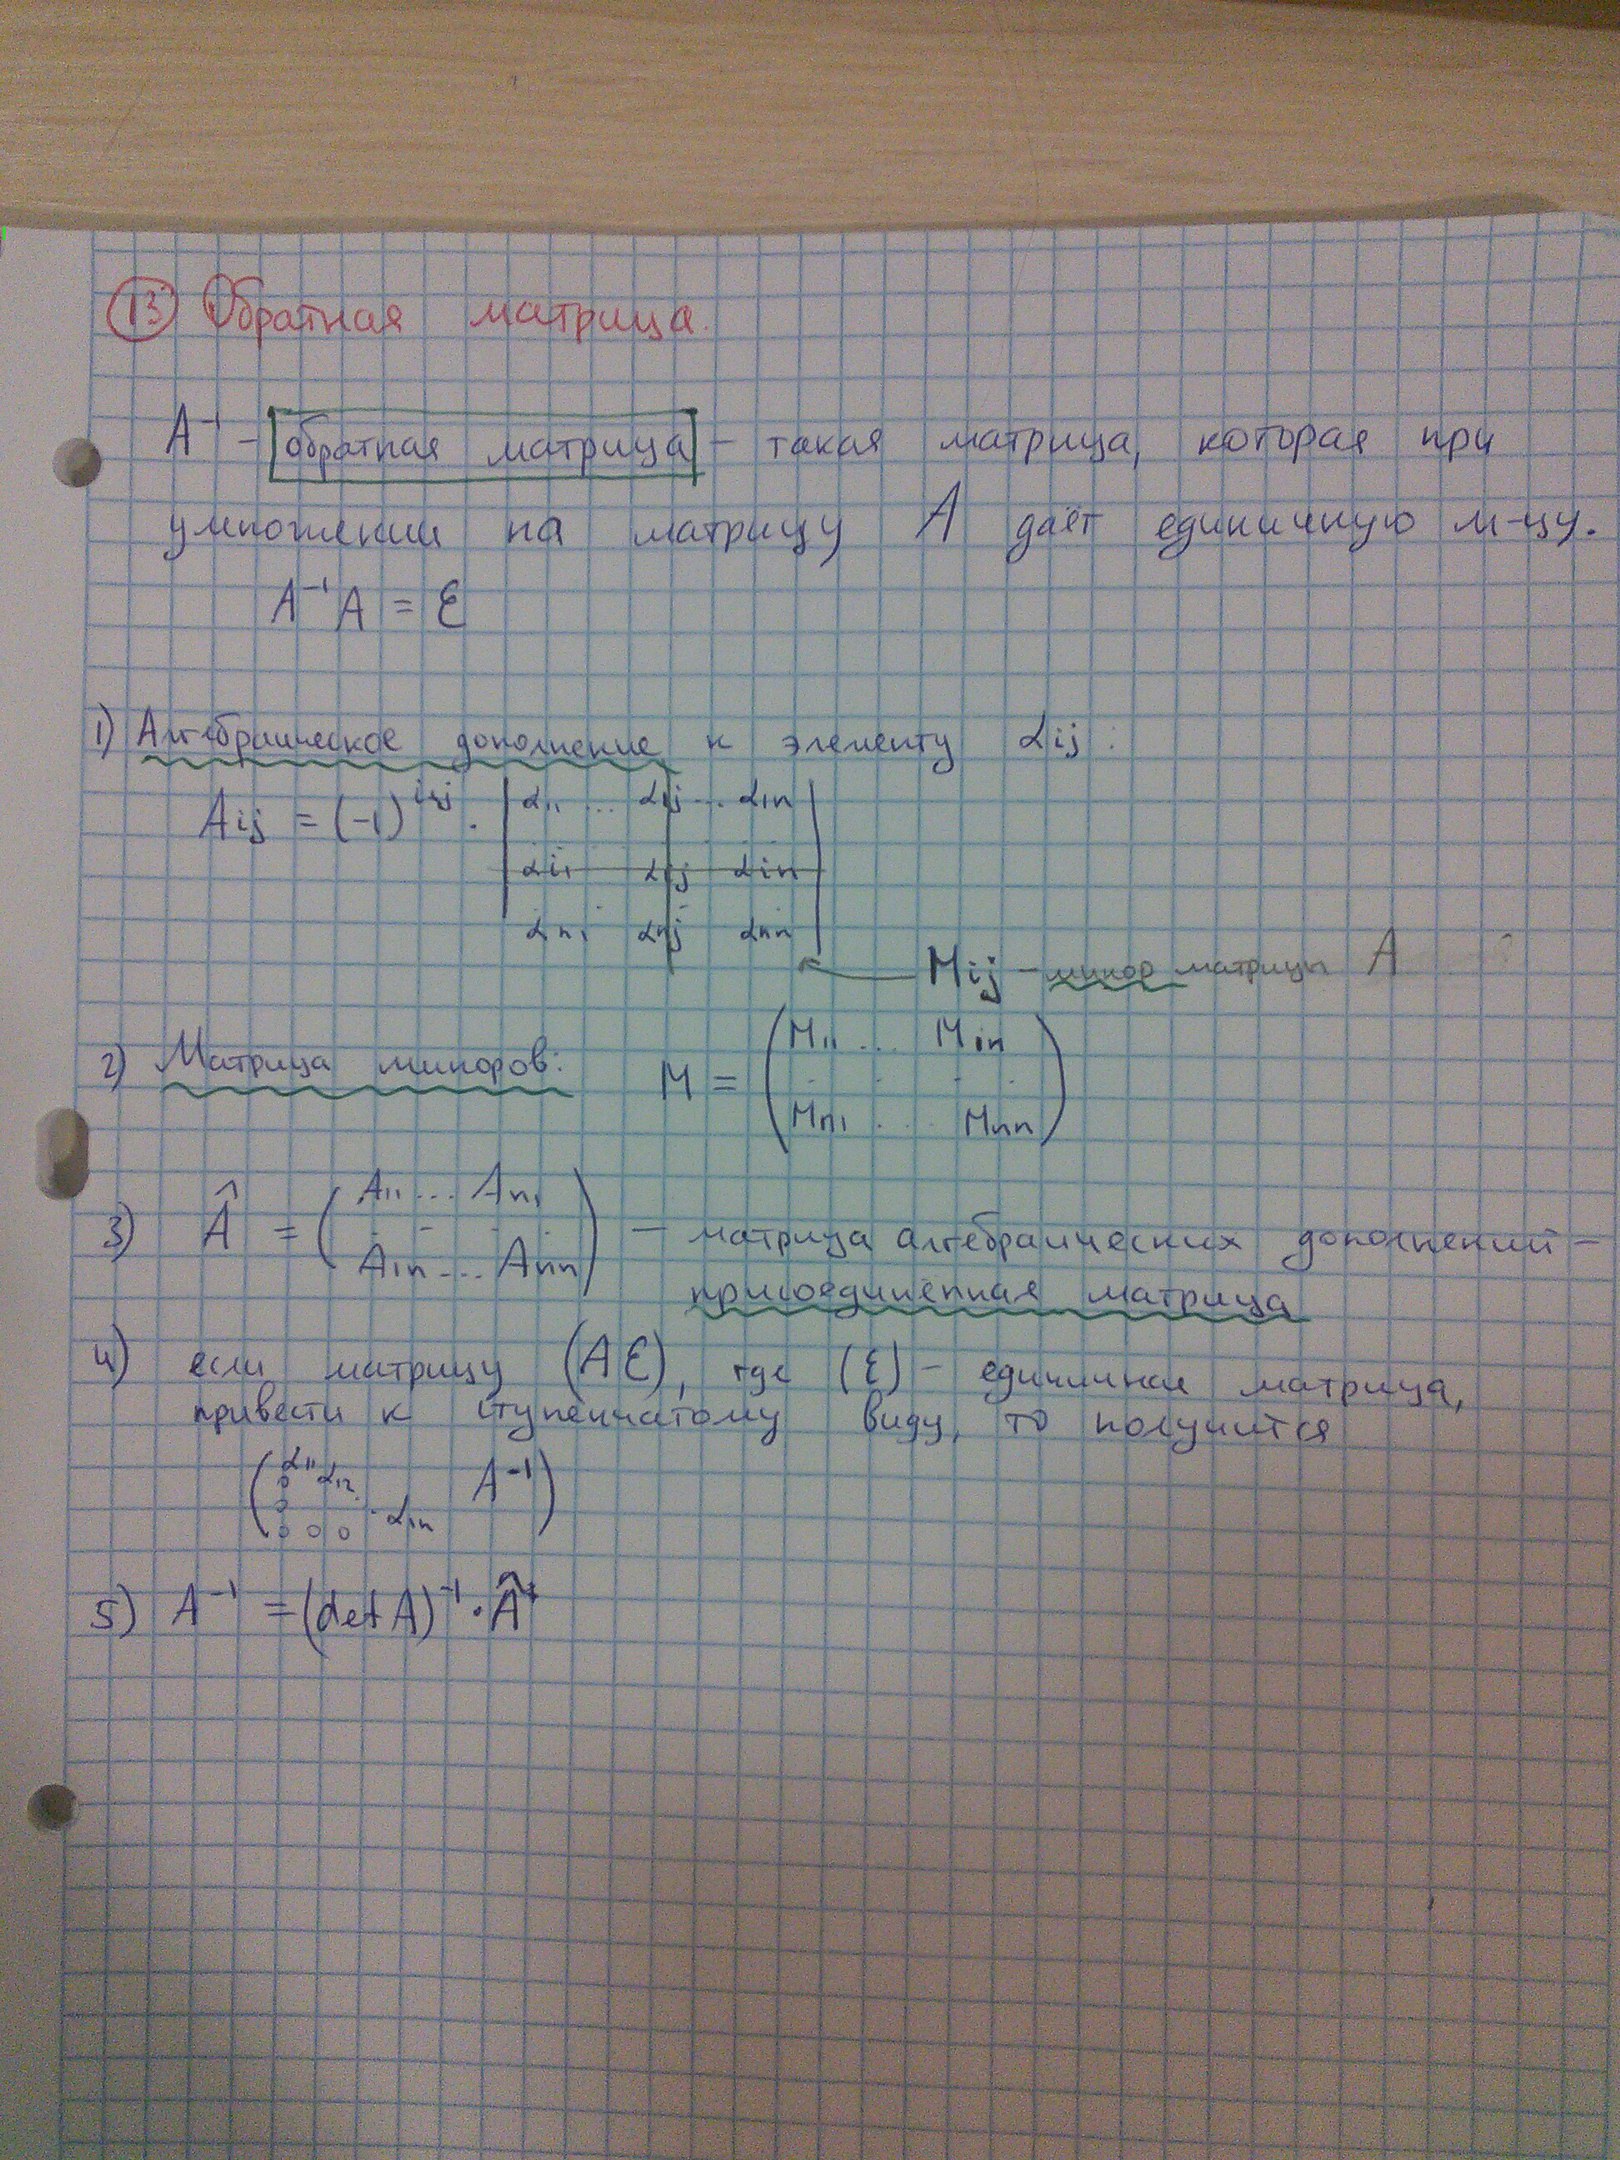 13 Обратная матрица.
A⁻¹ – обратная матрица – такая матрица, которая при
умножении на матрицу A даёт единичную м-цу.
A⁻¹A = ℰ
1) Алгебраическое дополнение к элементу αij:
Aij = (-1)^(i+j) · | α11 ... α1j ... α1n |
| αi1 αij αin |
| αn1 αnj αnn |
Mij – минор матрицы A
2) Матрица миноров: M = ( M11 ... M1n
. . . .
Mn1 ... Mnn )
3) Â = ( A11 ... An1
. - . .
A1n ... Ann ) – матрица алгебраических дополнений –
присоединённая матрица
4) если матрицу (Aℰ), где (ℰ) – единичная матрица,
привести к ступенчатому виду, то получится
( α11 α12 A⁻¹ )
0
0 . α1n
0 0 0
5) A⁻¹ = (det A)⁻¹ ·